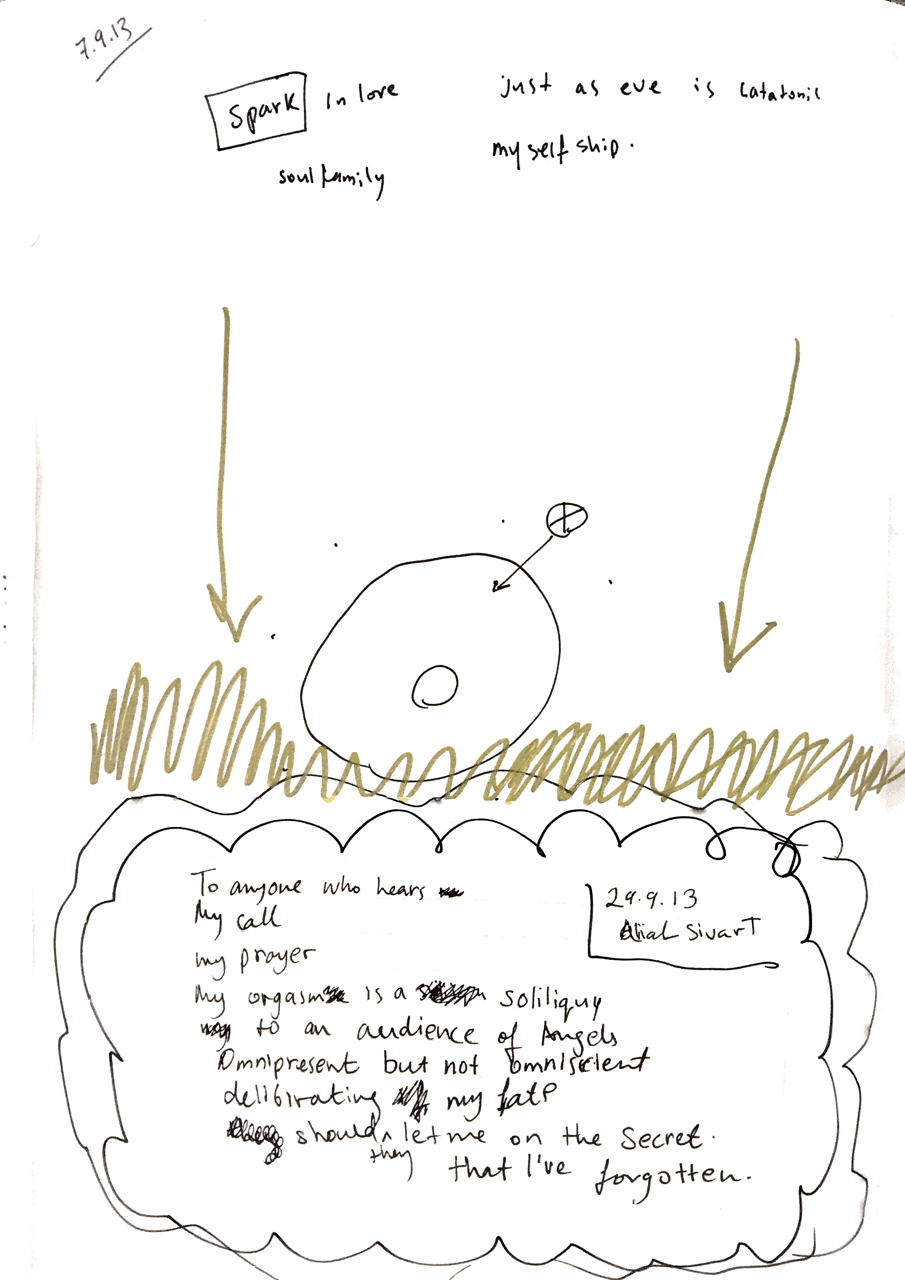 7.9.13
Spark in love
soul family
just as eve is catatonic
my self ship.
29.9.13
SivarT
To anyone who hears
My call
my prayer
My orgasm is a soliliquy
to an audience of Angels
Omnipresent but not omniscient
delibirating my fate
should they let me on the Secret.
that I've forgotten.